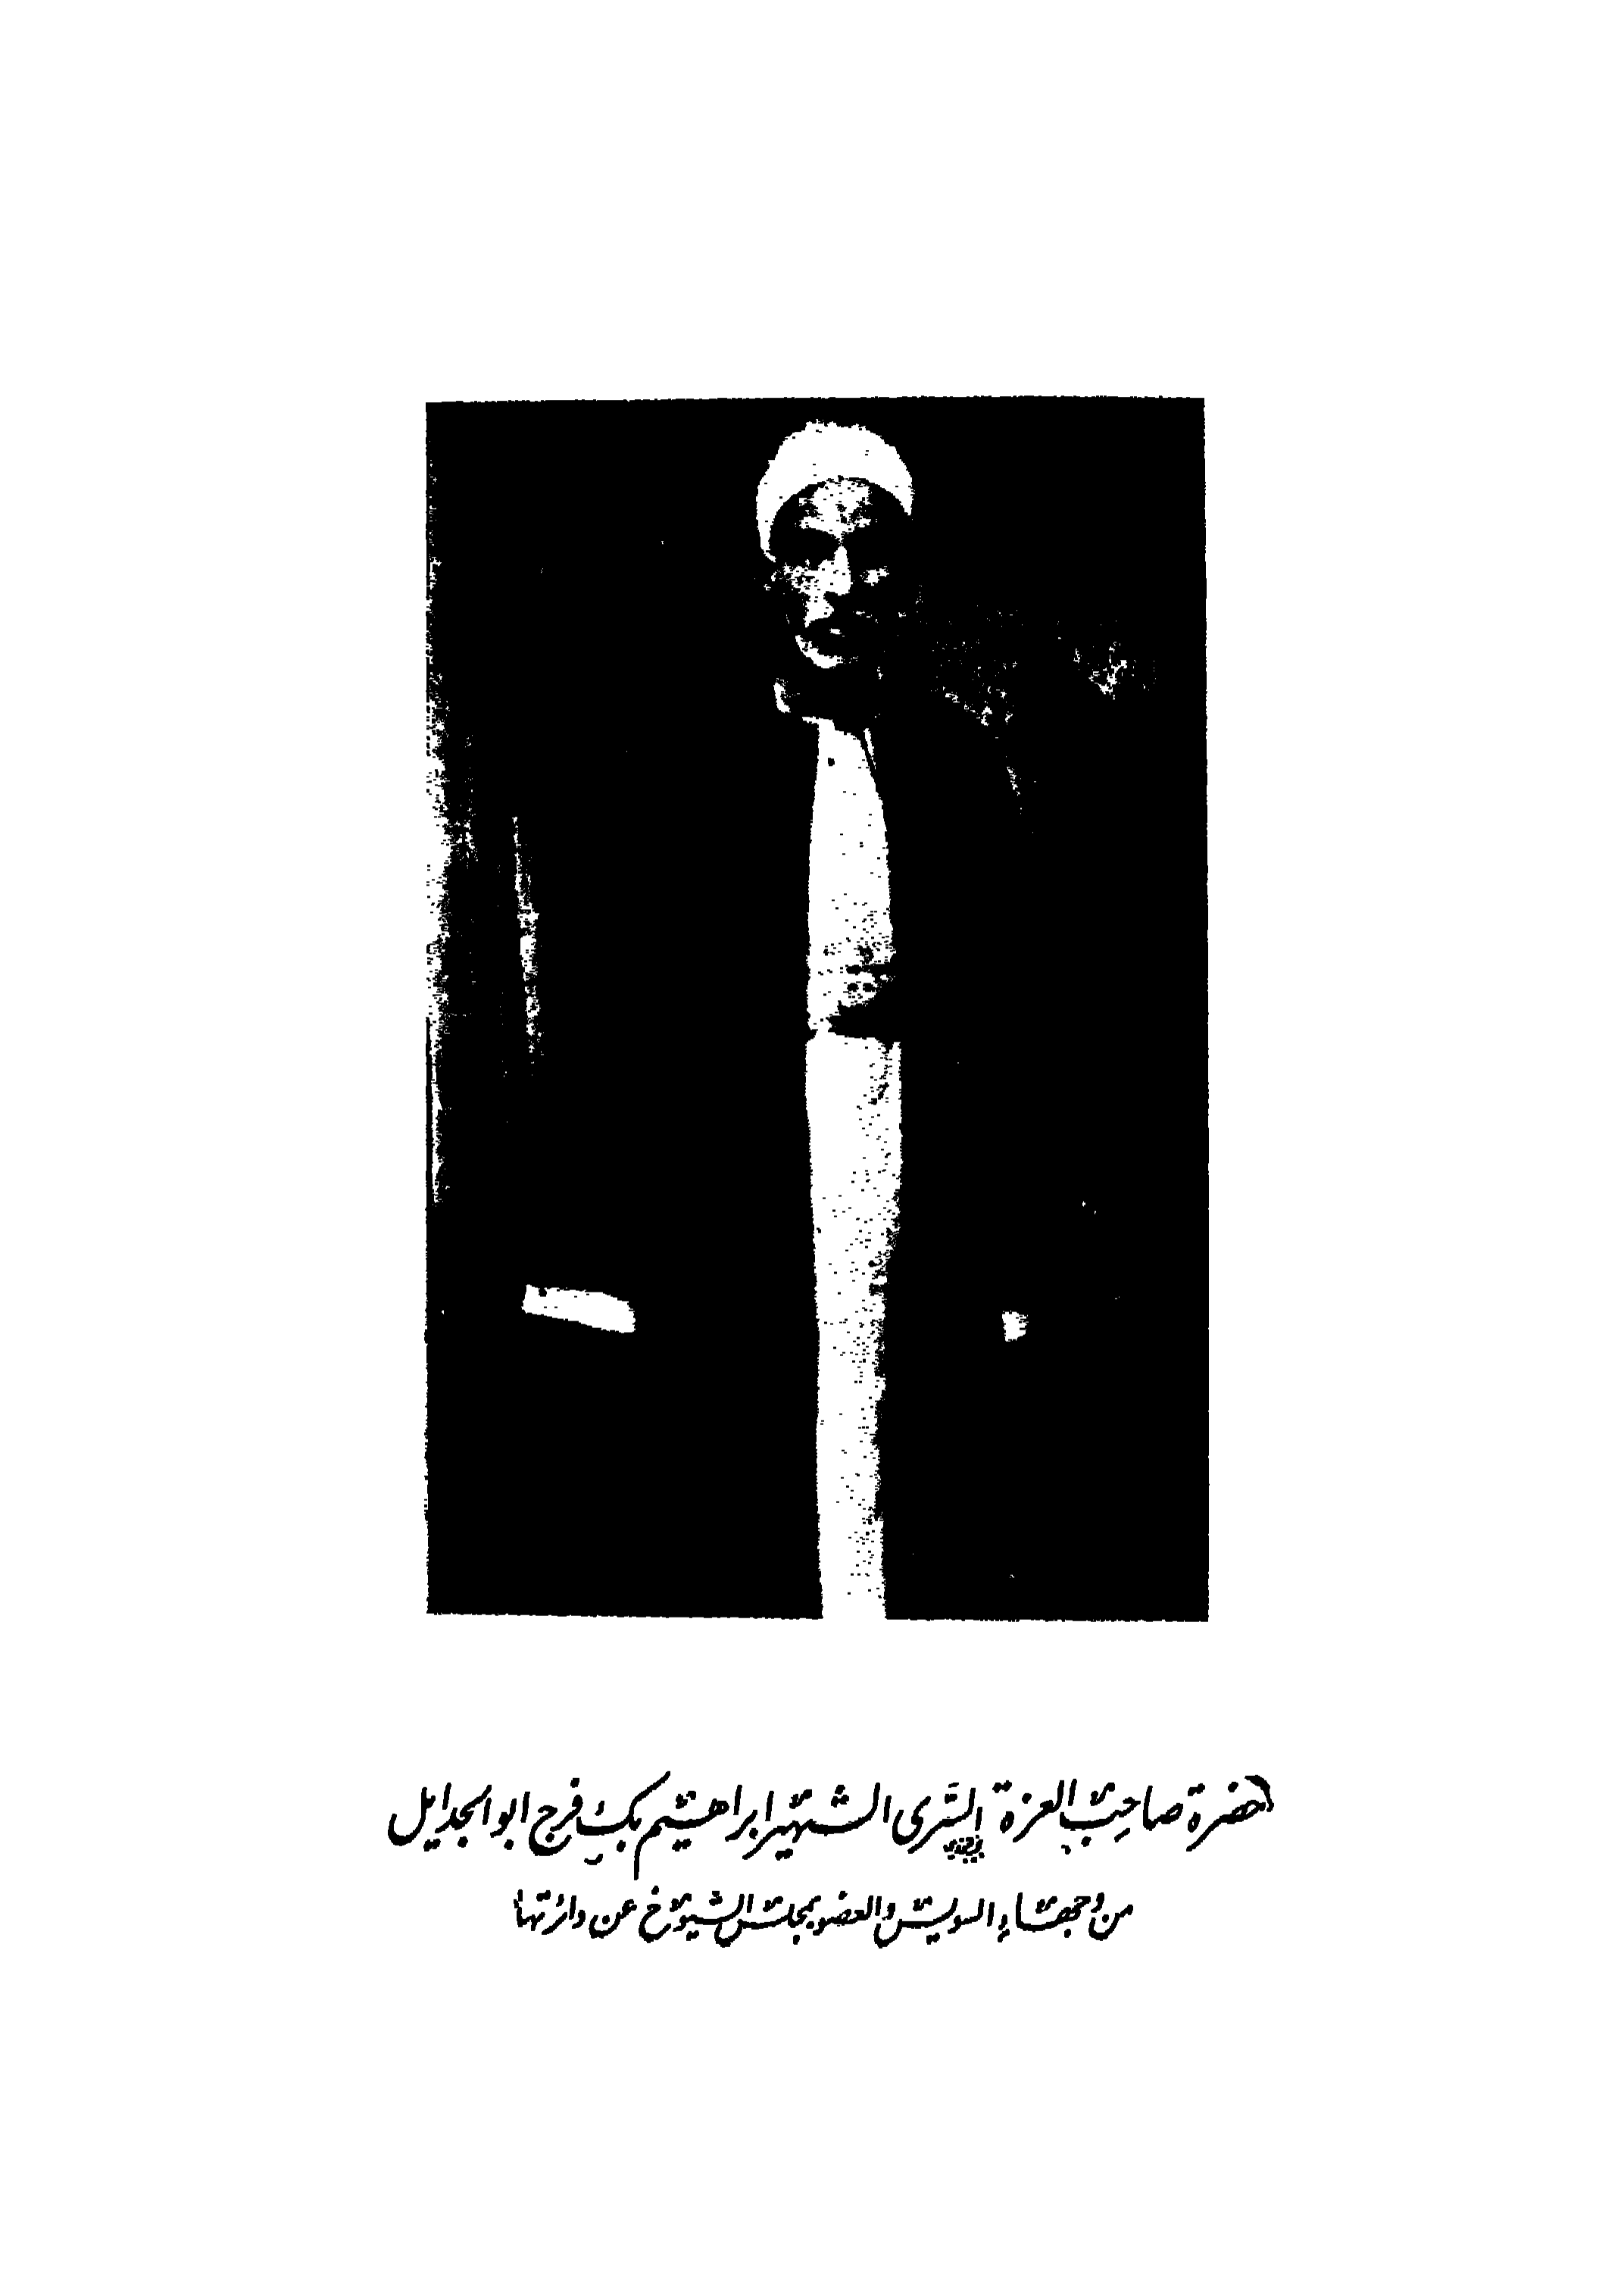 حضرة صاحب العزة السَّرى الشهير ابراهيم بك فرج ابو الجدايل
من وجهاء السويس والعضو بمجلس الشيوخ عن دائرتها